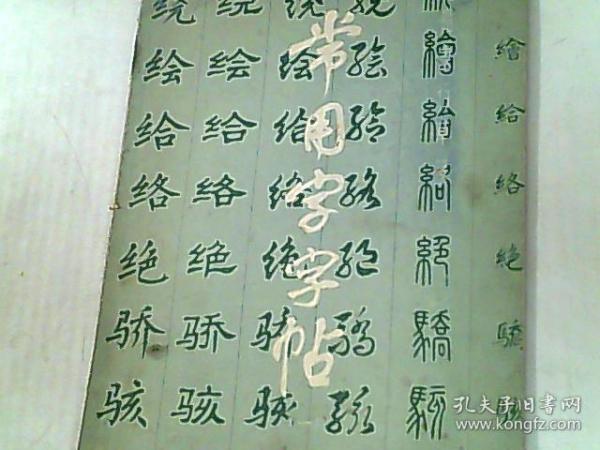 常用字字帖
绕 绕 绕 绕
绘 绘 绘 绘 繪 繪
给 给 给 给 給 給
络 络 络 络 絡 絡
绝 绝 绝 绝 絕 絕
骄 骄 骄 驕 驕 驕
骇 骇 骇 骇 駭
孔夫子旧书网
www.kongfz.com